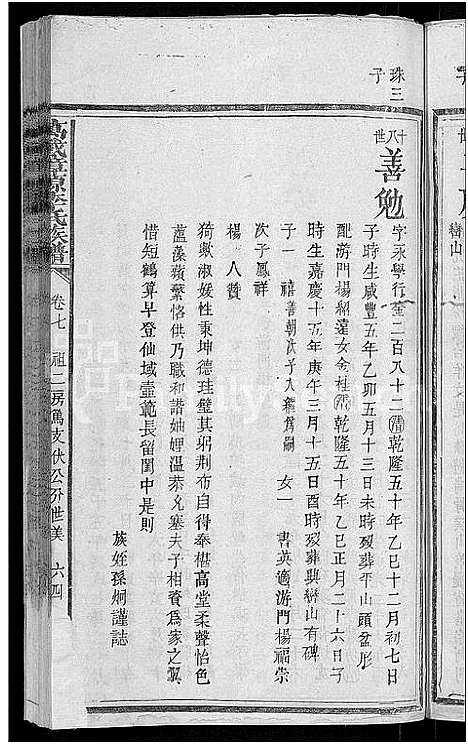 珠三子
十八世
善勉
字永學行奎二百八十二清乾隆五十年乙巳十二月初七日
子時生咸豐五年乙卯五月十三日未時歿葬平山頭盆形
配游門楊紹遠女金桂清乾隆五十年乙巳正月二十六日子
時生嘉慶十五年庚午三月十五日酉時歿葬與嶺山有碑
子一 禧善朝次子入繼爲嗣 女一 書英適游門楊福崇
次子鳳祥
楊人贊
猗歟淑媛性秉坤德珪璧其躬荆布自得奉椹高堂柔聲怡色
薀藻蘋蘩恪供乃職和諧妯娌溫恭允塞夫子相資爲家之翼
惜短鶴算早登仙域壼範長留閨中是則
族姪孫炯謹誌
萬載葦原李氏族譜
卷七
祖二房萬支伏公分世美
六四